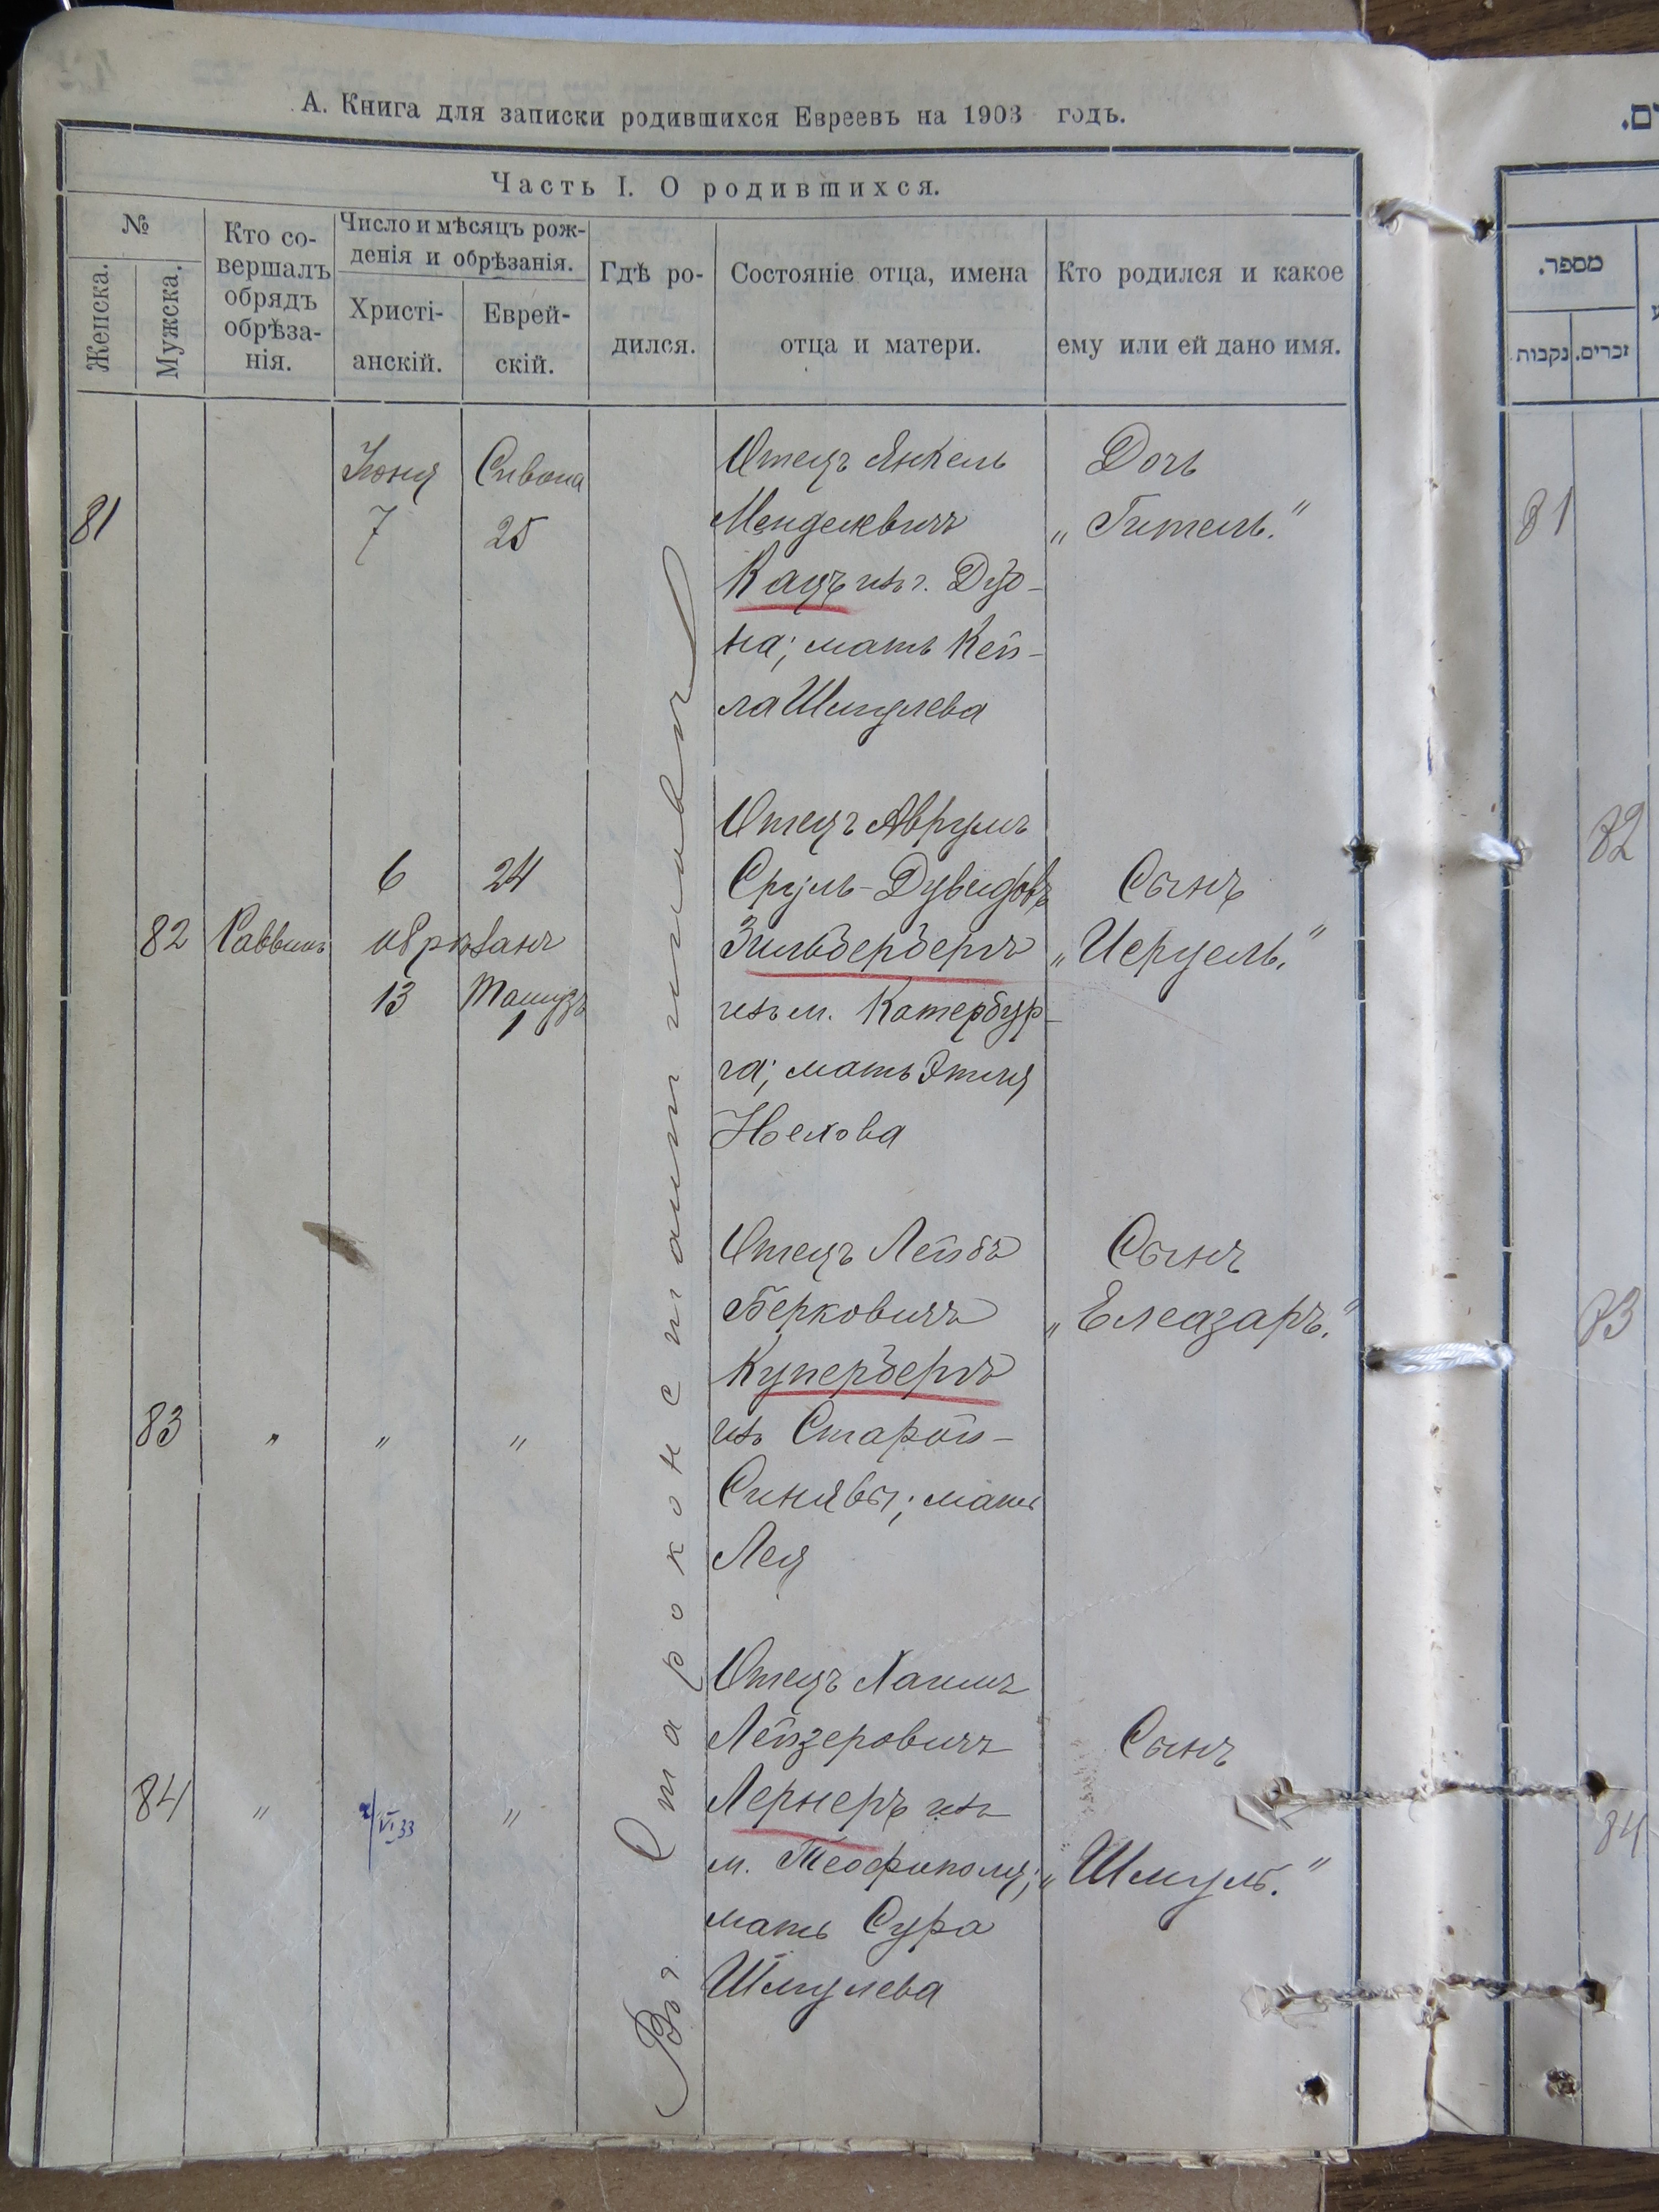 А. Книга для записки родившихся Евреевъ на 1903 годъ.
Часть I. О родившихся.
№
Женска.
Мужска.
Кто со-
вершалъ
обрядъ
обрѣза-
нія.
Число и мѣсяцъ рож-
денія и обрѣзанія.
Христі-
анскій.
Еврей-
скій.
Гдѣ ро-
дился.
Состояніе отца, имена
отца и матери.
Кто родился и какое
ему или ей дано имя.
81
Іюня
7
Сивона
25
Отецъ Янкель
Менделевичъ
Кацъ изъ г. Дуб-
на; мать Кей-
ла Шмулева
Дочь
„Гитель."
82
Раввинъ
6
24
обрѣзанъ
13
Тамузъ
1
Отецъ Аврумъ
Сруль-Дувидовъ
Зильбербергъ
изъ м. Катербур-
га; мать Этля
Сынъ
83
„
„
„
Отецъ Лейба
Берковичъ
Купербергъ
изъ Старой-
Синявы; мать
Лея
Сынъ
„Елеазаръ."
84
„
VI 33
„
Отецъ Хаимъ
Лейзеровичъ
Лернеръ изъ
м. Теофиполя;
мать Сура
Шмулева
Сынъ
„Шмуль."
Въ г. Староконстантиновѣ
ם.
מספר.
נקבות
זכרים.
81
82
83
84